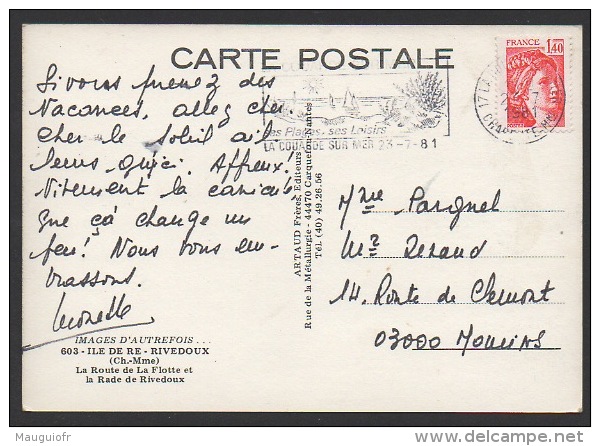 CARTE POSTALE
Si vous prenez des
Vacances, allez cher
cher le soleil ail
leurs qu'ici. Affreux!
Vitement la canicule
que ça change un
peu! Nous vous em-
brassons.
FRANCE
1,40
POSTES
Ses Plages, ses Loisirs
LA COUARDE SUR MER 23-7-81
ARTAUD Frères, Editeurs
Rue de la Métallurgie - 44470 Carquefou-Nantes
Tél. (40) 49.26.56
14, Route de Clermont
03000 Moulins
IMAGES D'AUTREFOIS...
603 - ILE DE RE - RIVEDOUX
(Ch.-Mme)
La Route de La Flotte et
la Rade de Rivedoux
Mauguiofr
delcampe.net